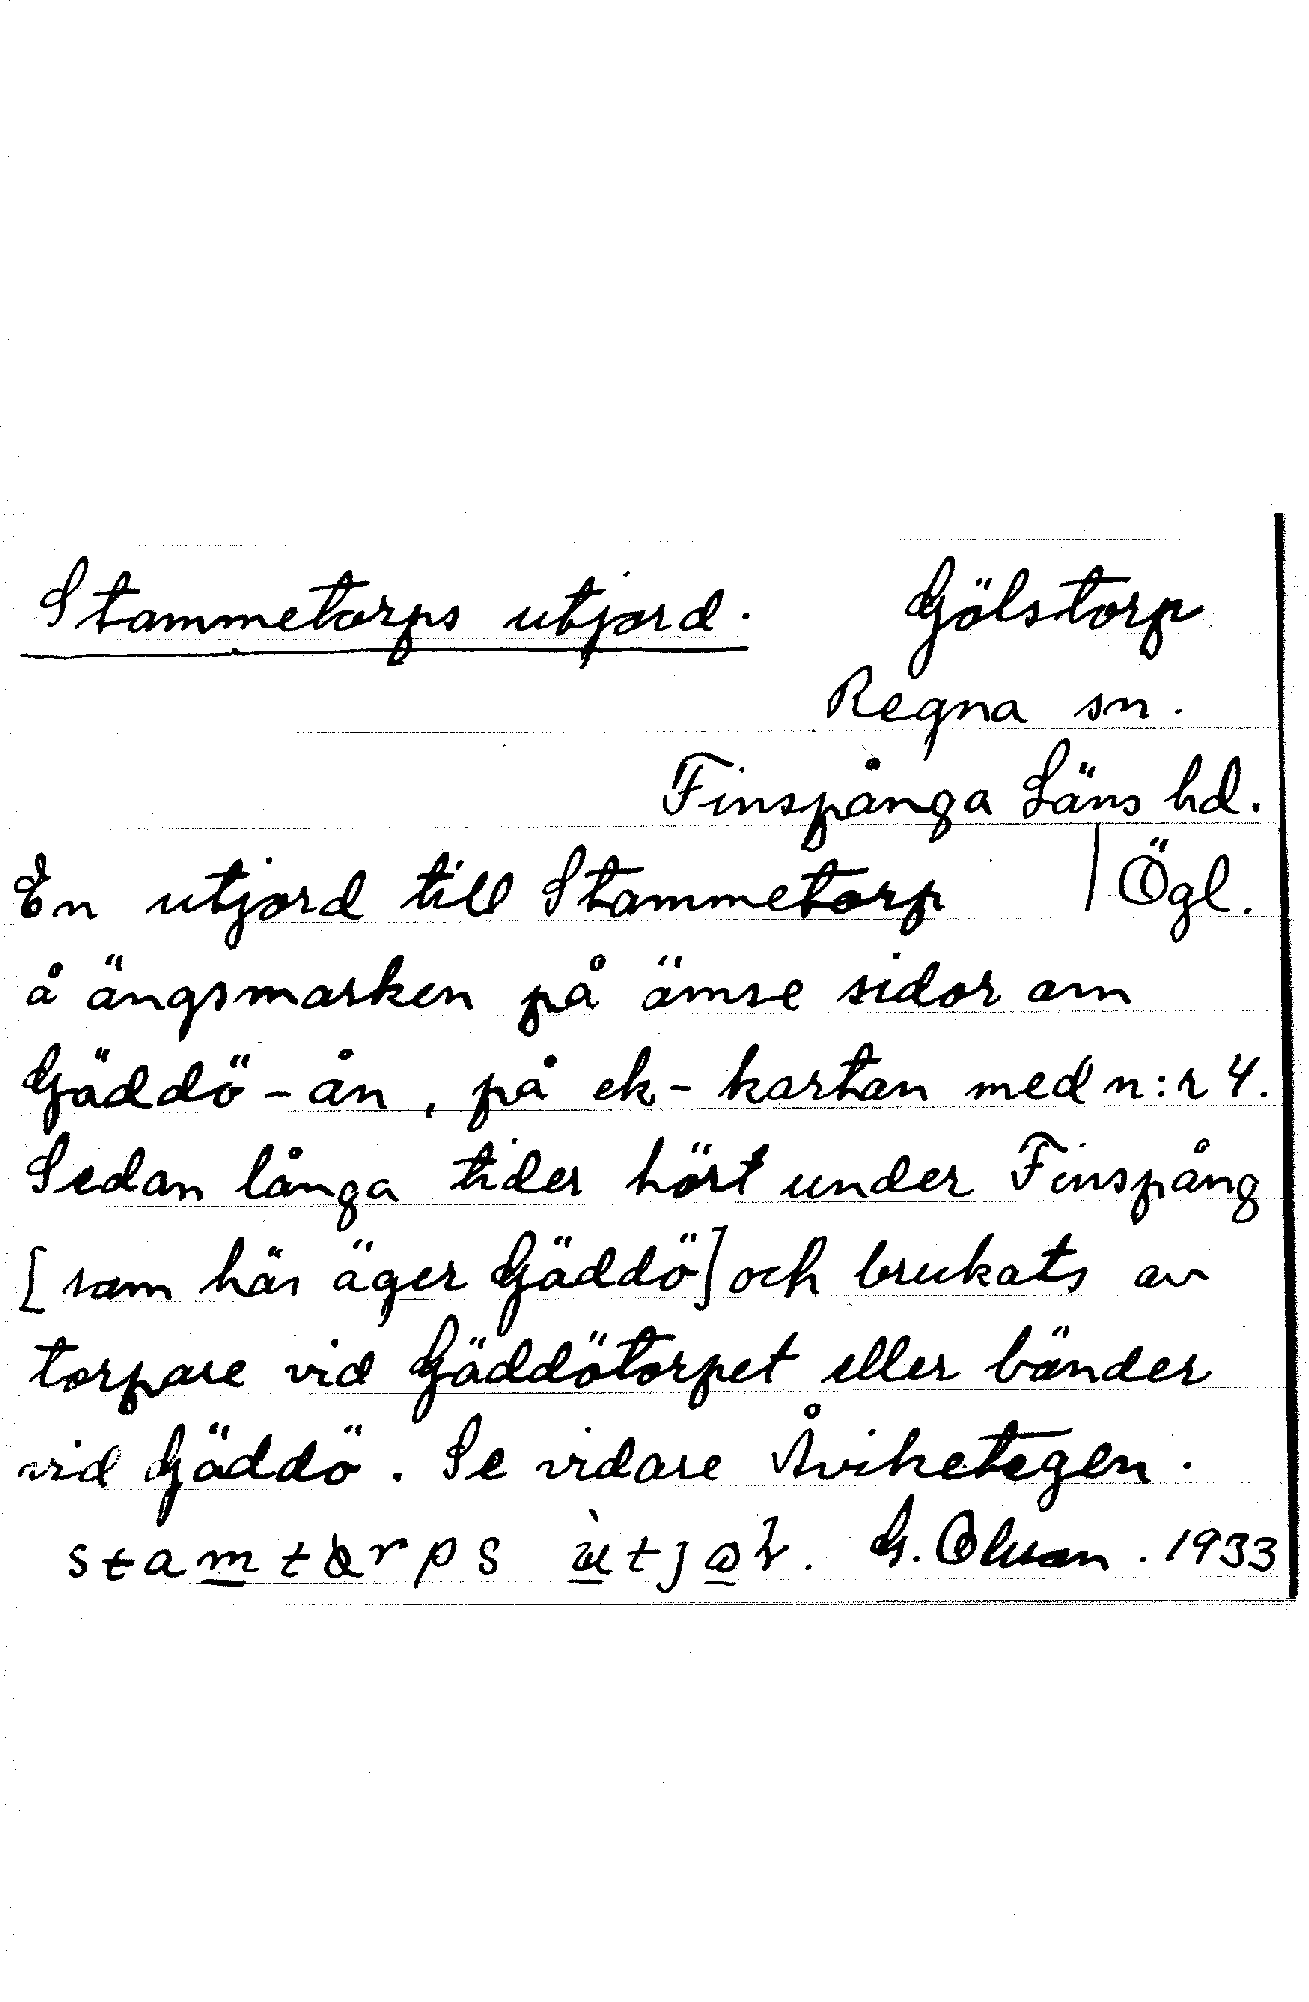 Stammetorps utjord. Gölstorp
Regna sn.
Finspånga Läns hd.
En utjord till Stammetorp | Ögl.
å ängsmarken på ömse sidor om
Gäddö-ån, på ek-kartan med n:r 4.
Sedan långa tider hört under Finspång
[som här äger Gäddö] och brukats av
torpare vid Gäddötorpet eller bönder
vid Gäddö. Se vidare Åviketegen.
G. Olsson. 1933